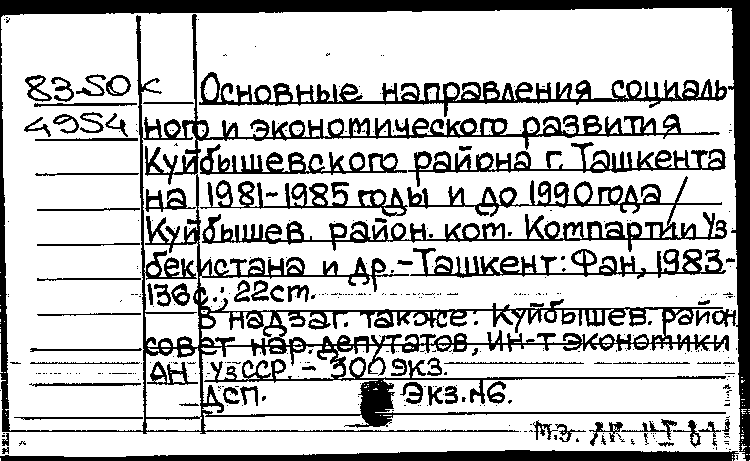 83-50 к Основные направления социаль-
4954 ного и экономического развития
Куйбышевского района г. Ташкента
на 1981-1985 годы и до 1990 года /
Куйбышев. район. ком. Компартии Уз-
бекистана и др. - Ташкент: Фан, 1983-
136 с.; 22 см.
В надзаг. также: Куйбышев. район
совет нар. депутатов, Ин-т экономики
АН УзССР. - 300 экз.
ДСП. Экз. №6.